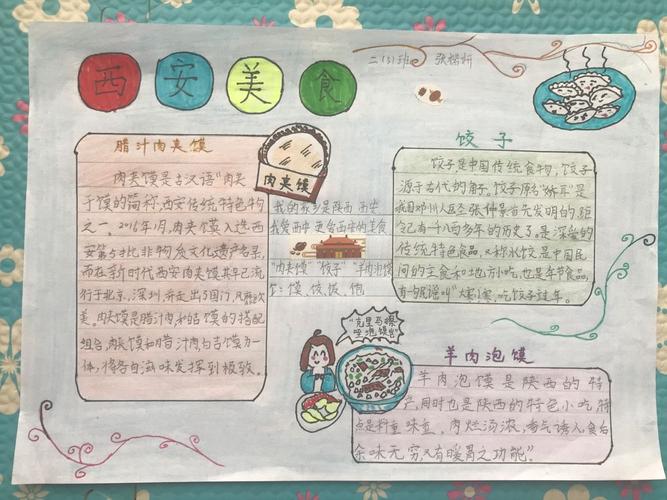 西安美食
二(3)班
腊汁肉夹馍
肉夹馍是古汉语"肉夹
于馍"的简称,西安传统特色食物
之一。2016年1月,肉夹馍入选西
安第五批非物质文化遗产名录,
而在新时代西安肉夹馍其早已流
行于北京,深圳,并走出了国门,风靡欧
美。肉夹馍是腊汁肉和白吉馍的搭配
组合,肉夹馍和腊汁肉白吉馍为一
体,将各自滋味发挥到极致。
肉夹馍
我的家乡是陕西 西安
我爱西安 更爱西安的美食
"肉夹馍""饺子""羊肉泡馍
馍、饺、饭、饱
饺子
饺子是中国传统食物,饺子
源于古代的角子,饺子原名"娇耳"是
我国邓州人医圣张仲景首先发明的距
今已有一千八百多年的历史了。是深受的
传统特色食品,又称水饺,是中国民
间的主食和地方小吃,也是年节食品,
有一句民谣叫"大寒小寒,吃饺子过年。
羊肉泡馍
羊肉泡馍是陕西的特
产,同时也是陕西的特色小吃,特
点是料重味重,肉烂汤浓,香气诱人,食后
余味无穷,又有暖胃之功能"。